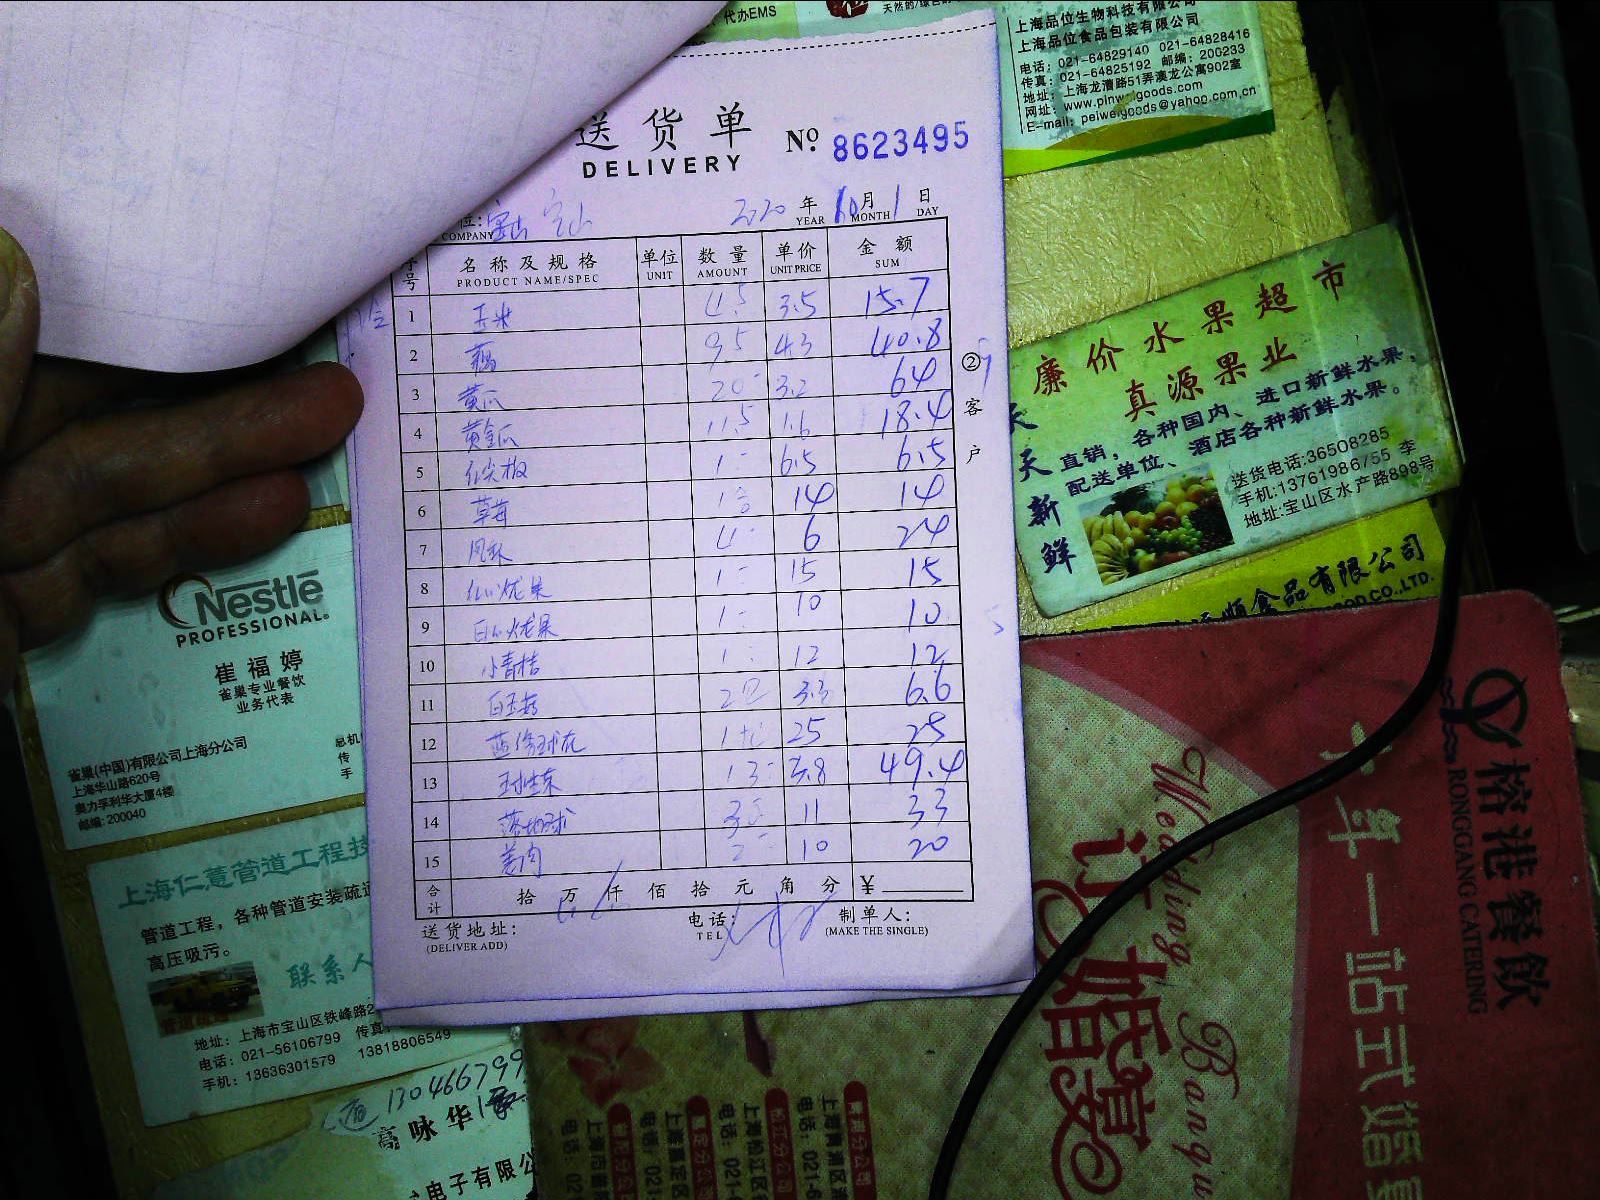 代办EMS
上海品位生物科技有限公司
上海品位食品包装有限公司
电话：021-64829140 021-64828416
传真：021-64825192 邮编：200233
地址：上海龙漕路51弄澳龙公寓902室
网址：www.pinweigoods.com
E-mail：peiweigoods@yahoo.com.cn
送货单
DELIVERY
Nº 8623495
位：宝山 宝山 2020年10月1日
COMPANY YEAR MONTH DAY
号 名称及规格 单位 数量 单价 金额
PRODUCT NAME/SPEC UNIT AMOUNT UNIT PRICE SUM
1 玉米 4.5 3.5 15.7
2 藕 9.5 4.3 40.8
3 黄瓜 20- 3.2 64
4 黄金瓜 11.5 1.6 18.4
5 红尖椒 1- 6.5 6.5
6 草莓 1盒 14 14
7 4- 6 24
8 红心火龙果 1- 15 15
9 白心火龙果 1- 10 10
10 小青桔 1- 12 12
11 白玉菇 2包 3.3 6.6
12 25 25
13 球生菜 13- 3.8 49.4
14 3 11 33
15 姜肉 2- 10 20
合计 拾 万 仟 佰 拾 元 角 分 ¥
送货地址： 电话： 制单人：
(DELIVER ADD) TEL (MAKE THE SINGLE)
② 客户
廉价水果超市
真源果业
天天新鲜
直销，各种国内、进口新鲜水果，
配送单位、酒店各种新鲜水果。
送货电话:36508285
手机:13761986755 李
地址:宝山区水产路898号
顺食品有限公司
FOOD CO.,LTD.
Nestlé
PROFESSIONAL®
崔福婷
雀巢专业餐饮
业务代表
雀巢(中国)有限公司上海分公司
上海华山路620号
奥力孚利华大厦4楼
邮编: 200040
总机
传
手
上海仁薏管道工程技
管道工程，各种管道安装疏通
高压吸污。
联系人
管道疏通
地址：上海市宝山区铁峰路2
电话：021-56106799 传真
手机：13636301579 13818806549
130466799
高咏华
电子有限公
榕港餐飲
RONGGANG CATERING
十年一站式婚宴
订婚宴
Wedding Banqu